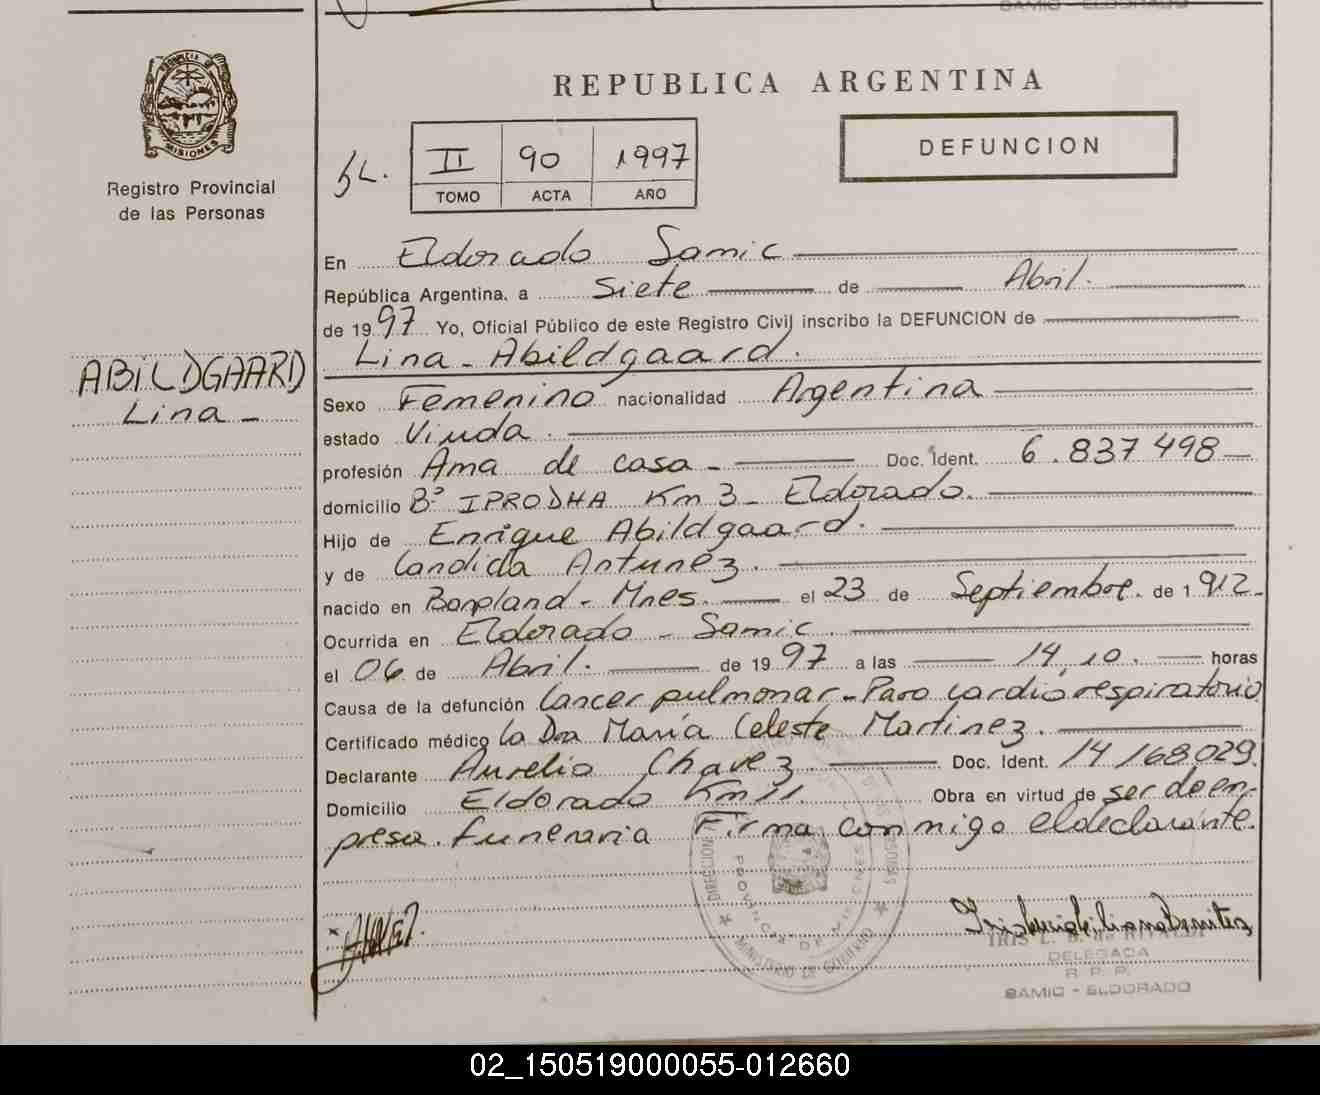 SAMIC - ELDORADO
PROVINCIA DE
MISIONES
Registro Provincial
de las Personas
REPUBLICA ARGENTINA
DEFUNCION
II 90 1997
TOMO ACTA AÑO
En Eldorado Samic
República Argentina, a Siete de Abril.
de 1997 Yo, Oficial Público de este Registro Civil inscribo la DEFUNCION de
Lina - Abildgaard.
ABILDGAARD
Lina -
Sexo Femenino nacionalidad Argentina
estado Viuda.
profesión Ama de casa - Doc. Ident. 6.837498
domicilio Bº IPRODHA Km 3 - Eldorado.
Hijo de Enrique Abildgaard.
y de Candida Antunez.
nacido en Bonpland - Mnes. el 23 de Septiembre. de 1912-
Ocurrida en Eldorado - Samic.
el 06 de Abril. de 1997 a las 14,10. horas
Causa de la defunción Cancer pulmonar - Paro cardio respiratorio
Certificado médico la Dra María Celeste Martinez.
Declarante Aurelio Chavez. Doc. Ident. 14168.029.
Domicilio Eldorado Km 11. Obra en virtud de ser de em-
presa funeraria Firma conmigo el declarante.
DIRECCION
PROVINCIA DE MISIONES
MINISTERIO DE GOBIERNO
IRIS L. B. de
DELEGADA
R. P. P.
SAMIC - ELDORADO
02_150519000055-012660